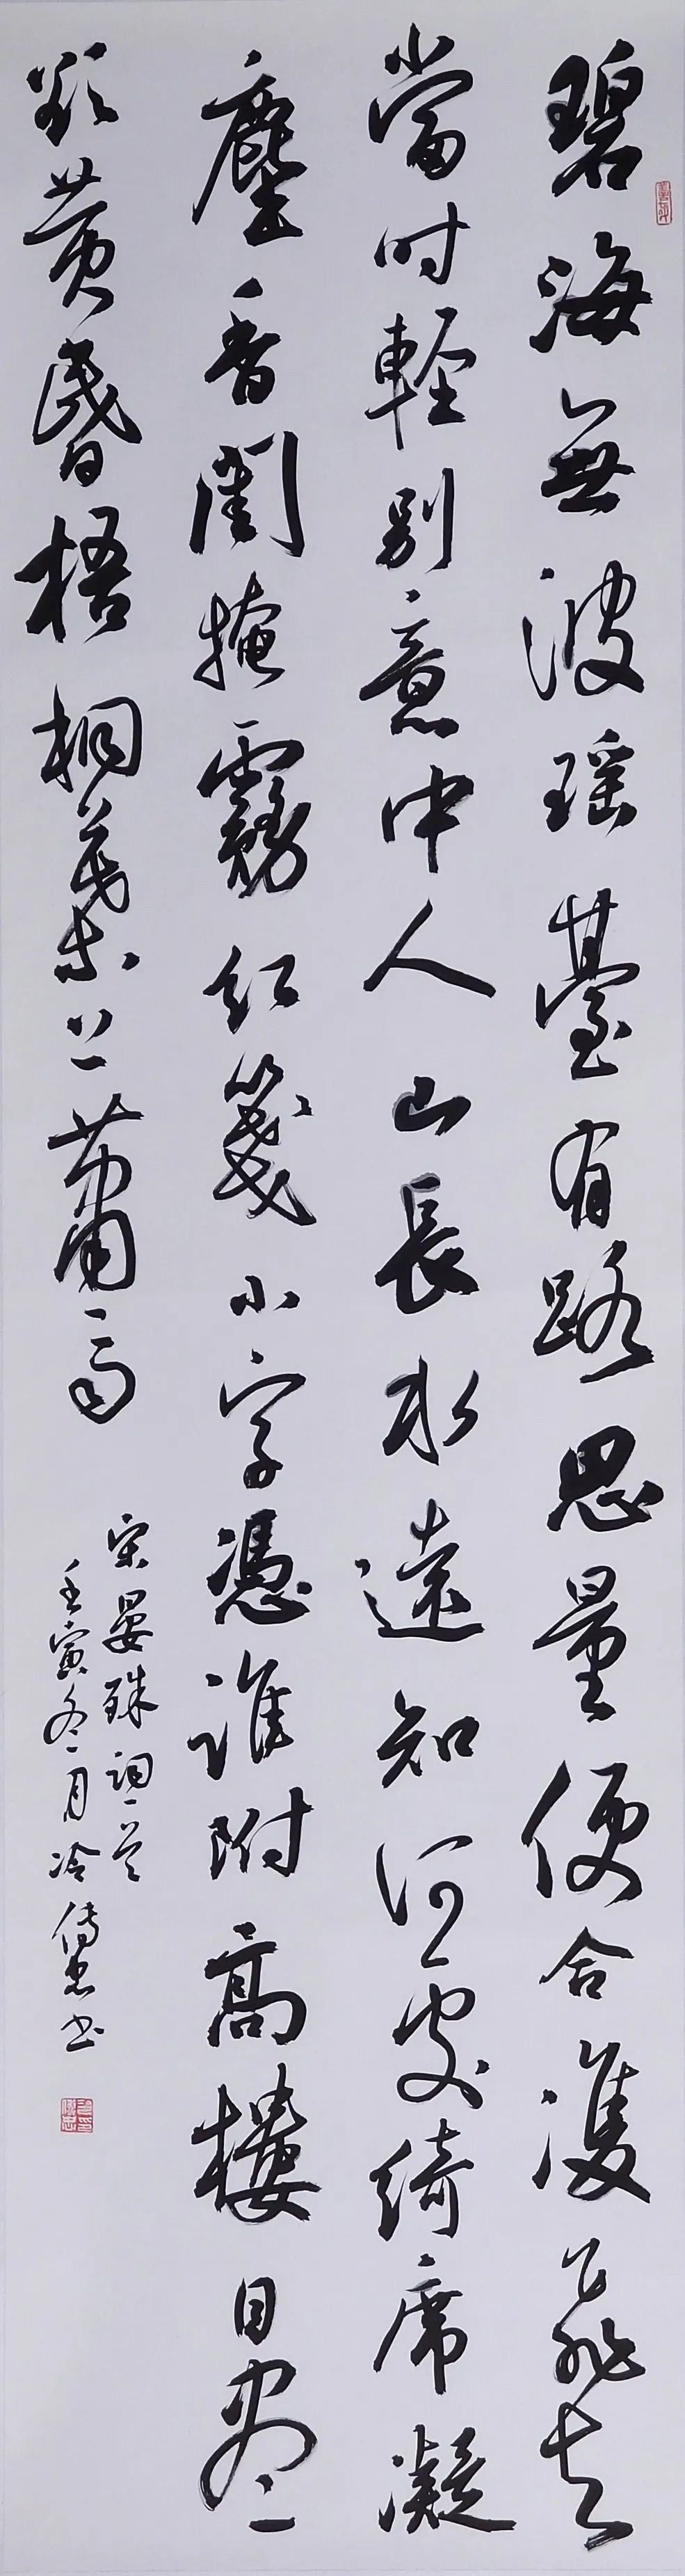 碧海無波瑶臺有路思量便合雙飛去
當時輕别意中人山長水遠知何處綺席凝
塵香閨掩霧紅箋小字憑誰附髙樓目盡
欲黄昬梧桐葉上蕭々雨
宋晏殊詞一首
壬寅冬月冷傳忠书